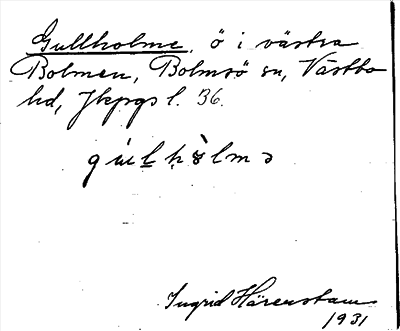 Gullholme, ö i västra
Bolmen, Bolmsö sn, Västbo
hd, Jkpgs l. 36.
Ingrid Härenstam
1931